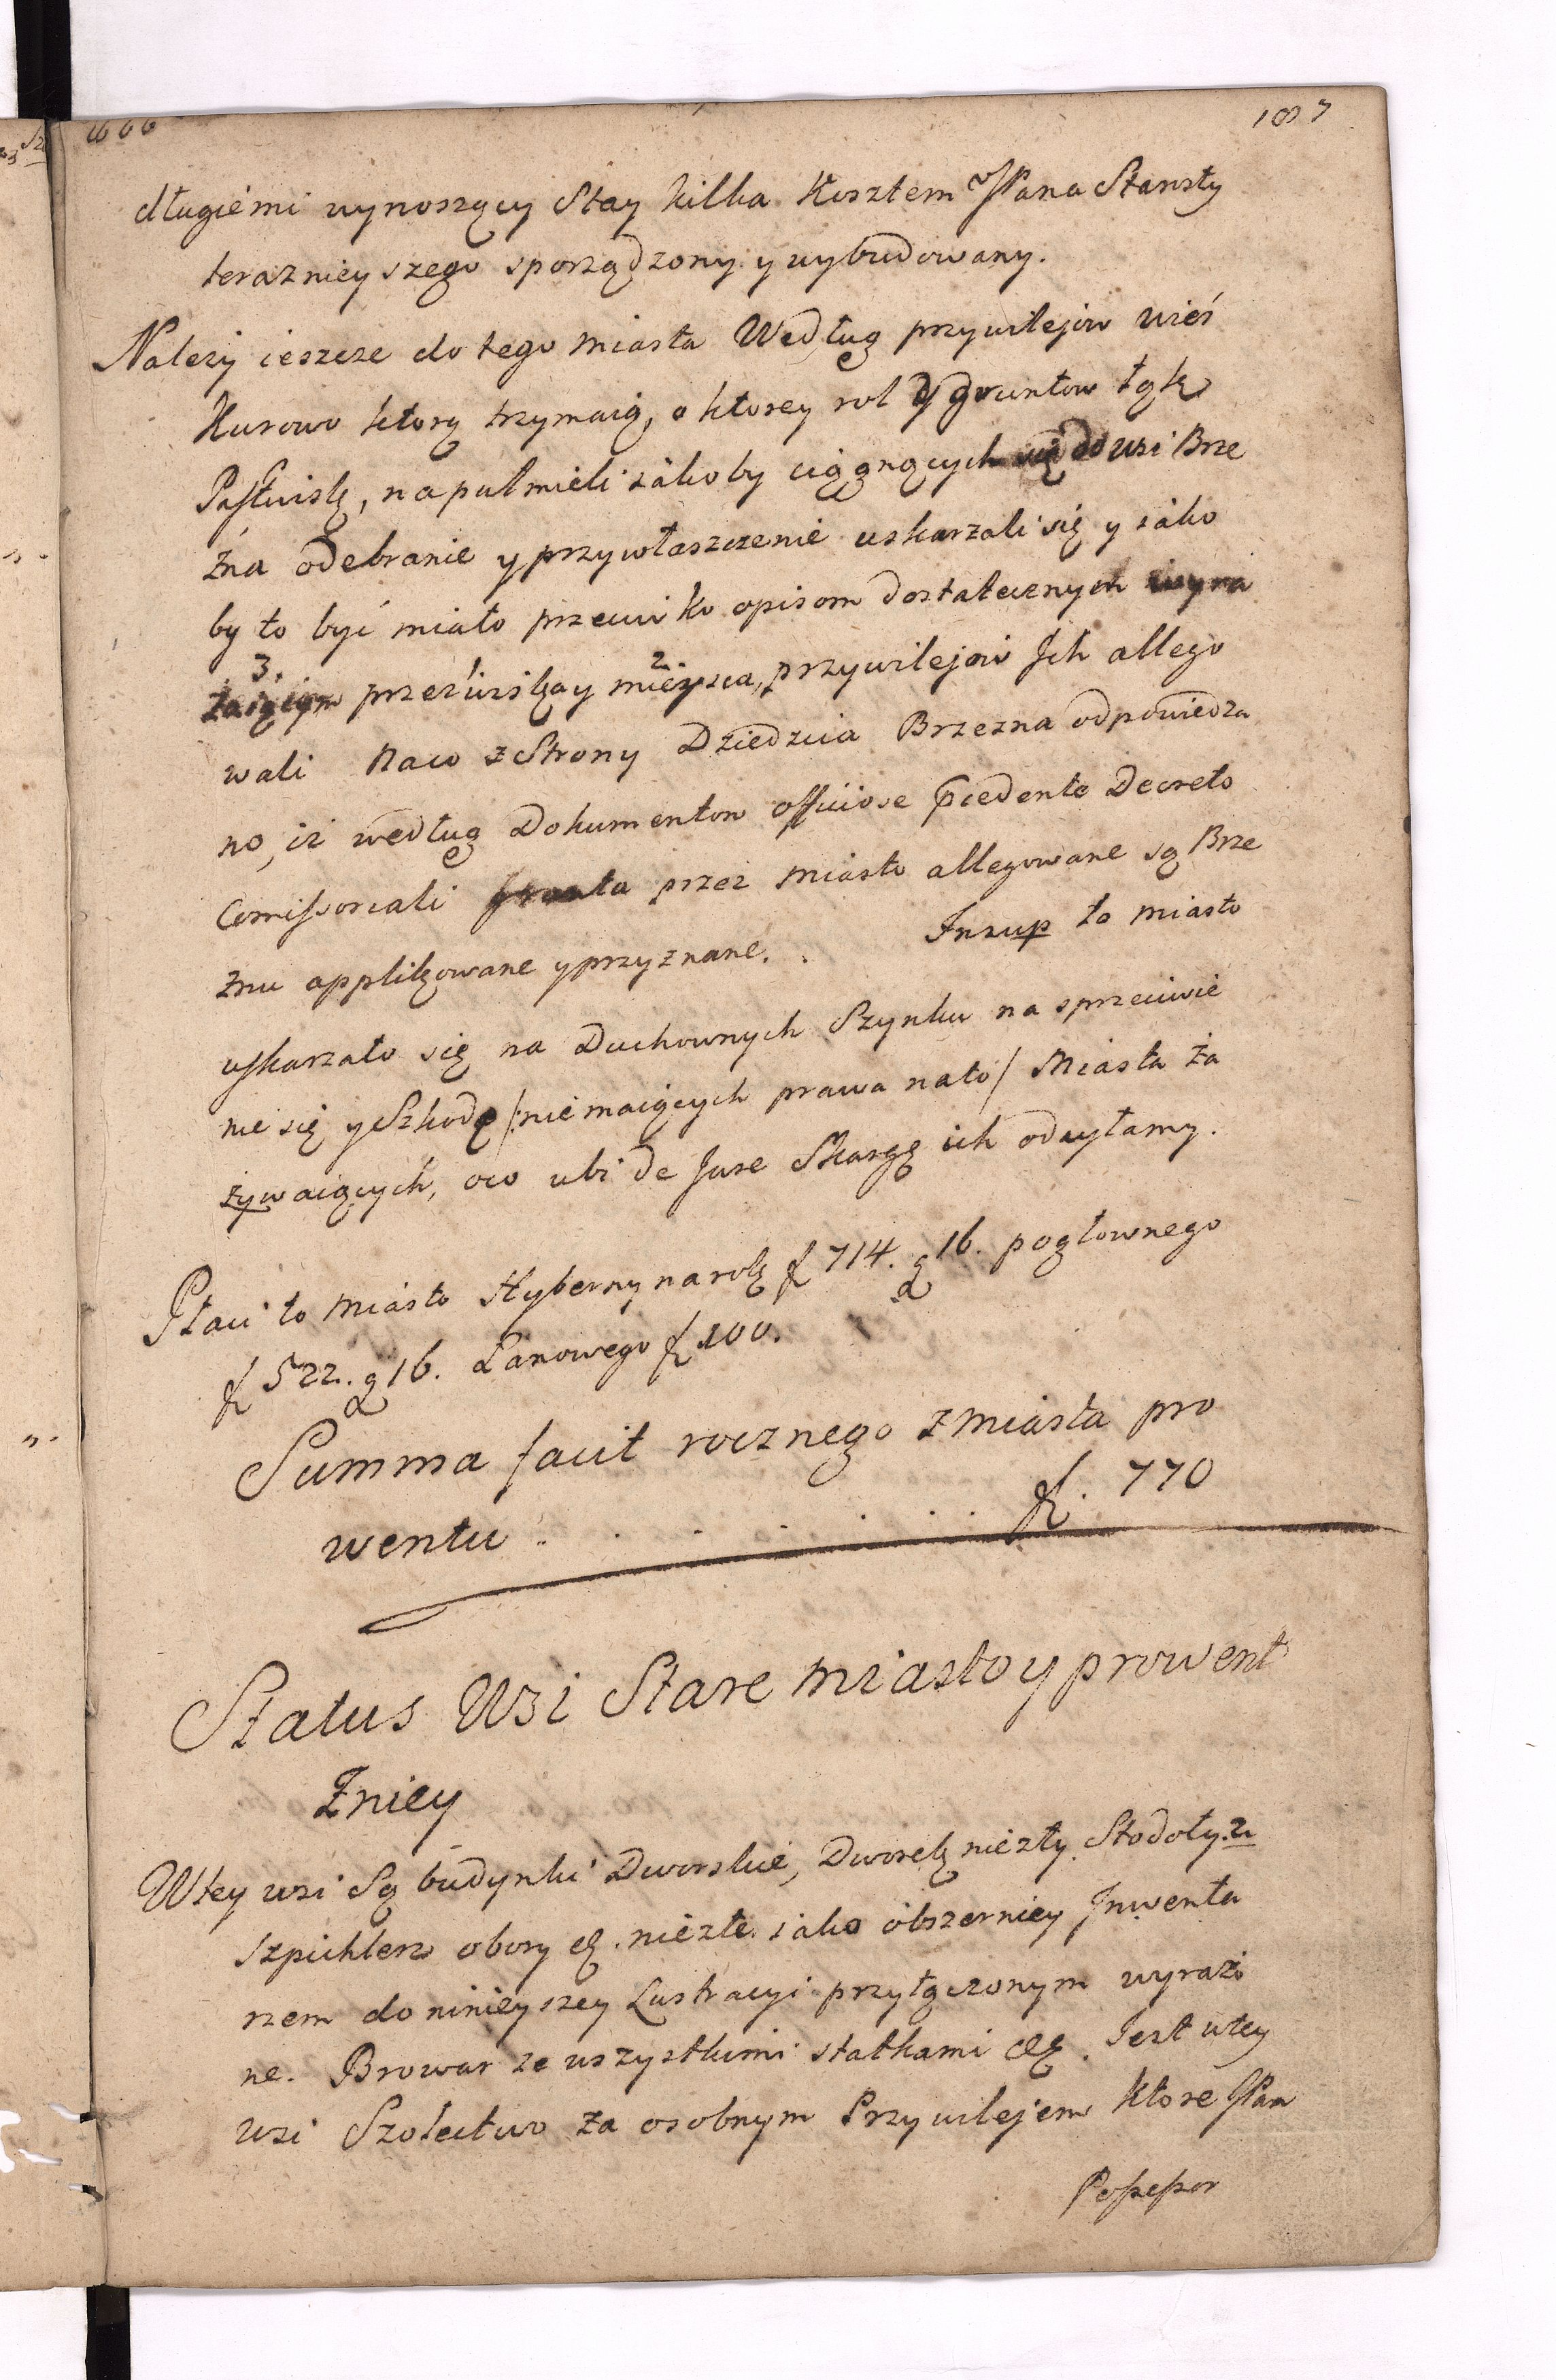 187
długiemi wynoszący Stay kilka Kosztem JPana Starosty
teraznieyszego sporządzony y wybudowany.
Nalezy ieszcze do tego miasta Według przywilejow wieś
Kurowo ktorą trzymaią, o ktorey rol y gruntow łąk
Pastwisk, na puł mieli iakoby ciągnących się do wsi Brze
źna odebranie y przywłaszczenie uskarzali się y iako
by to być miało przeciwko opisom dostatecznych wyra
3. 2.
przez wieś kazdy mieysca, przywilejow Ich allego
wali Naco z Strony Dziedzica Brzezna odpowiedza
no, iz według Dokumentow officiose pcedente Decreto
Comissoriali grunta przez miasto allegowane są Brze
znu applikowane y przyznane. Insup to miasto
uskarzało się na Duchownych Szynku na sprzeciwie
nie się y Szkodę /: nie maiących prawa nato / Miasta za
zywaiących, oco ubi de Jure Skargę ich odsyłamy.
Płaci to miasto Hyberny na rolę f 714. g 16. pogłownego
f 522. g 16. Łanowego f 100.
Summa facit rocznego z miasta pro
wentu . . . . . . f. 770
Status Wsi Stare miasto y prowent
Zniey
Wtey wsi Są budynki Dworskie, Dworek niezły Stodoły 2
Szpichlerz obory etc. niezłe. iako obszerniey Inwenta
rzem do ninieyszey Lustracyi przyłączonym wyrażo
ne. Browar ze wszystkimi statkami etc. Jest wtey
wsi Szołectwo za osobnym Przywilejem ktore JPan
Possessor